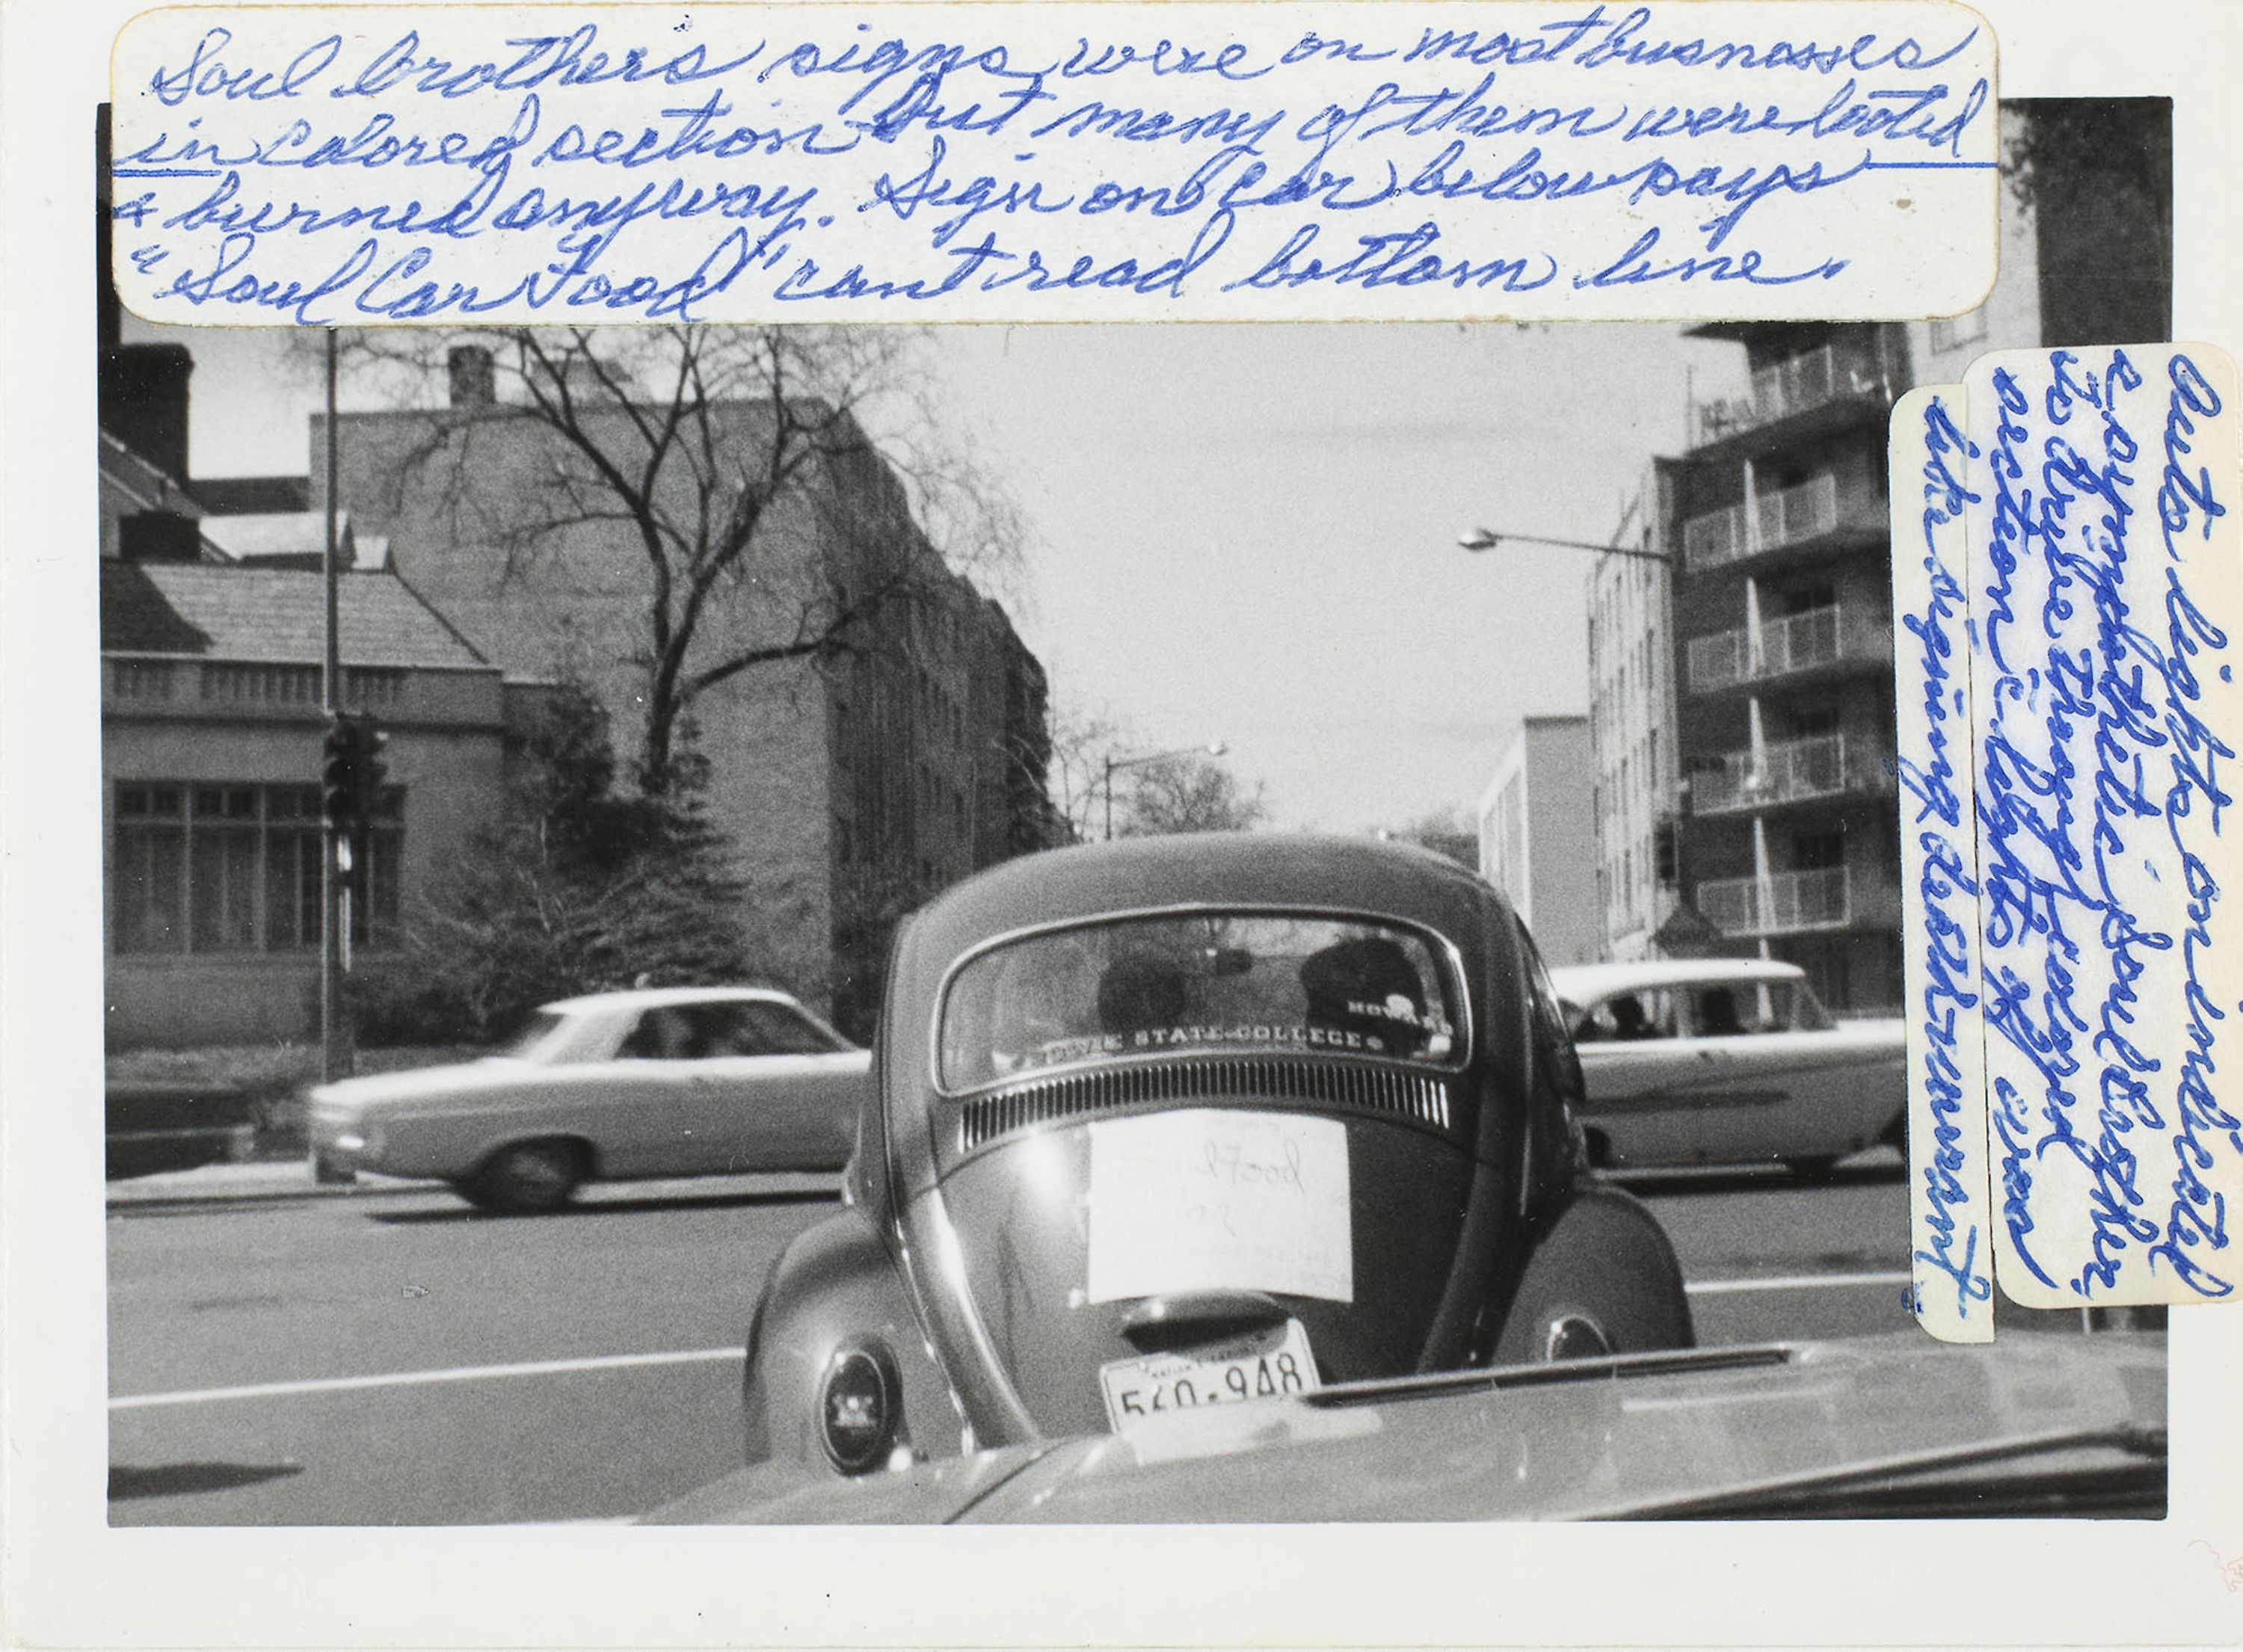 Soul brothers signs were on most busnosses
in colored section but many of them were looted
& burned anyway. Sign on car below says
"Soul Car Food" cant read bottom line.
Auto lights on indicated
a sympathetic soul brother.
to drive through colored
section c̄ lights off was
like signing death-warrant
STATE COLLEGE
HOWARD
Food
560-948